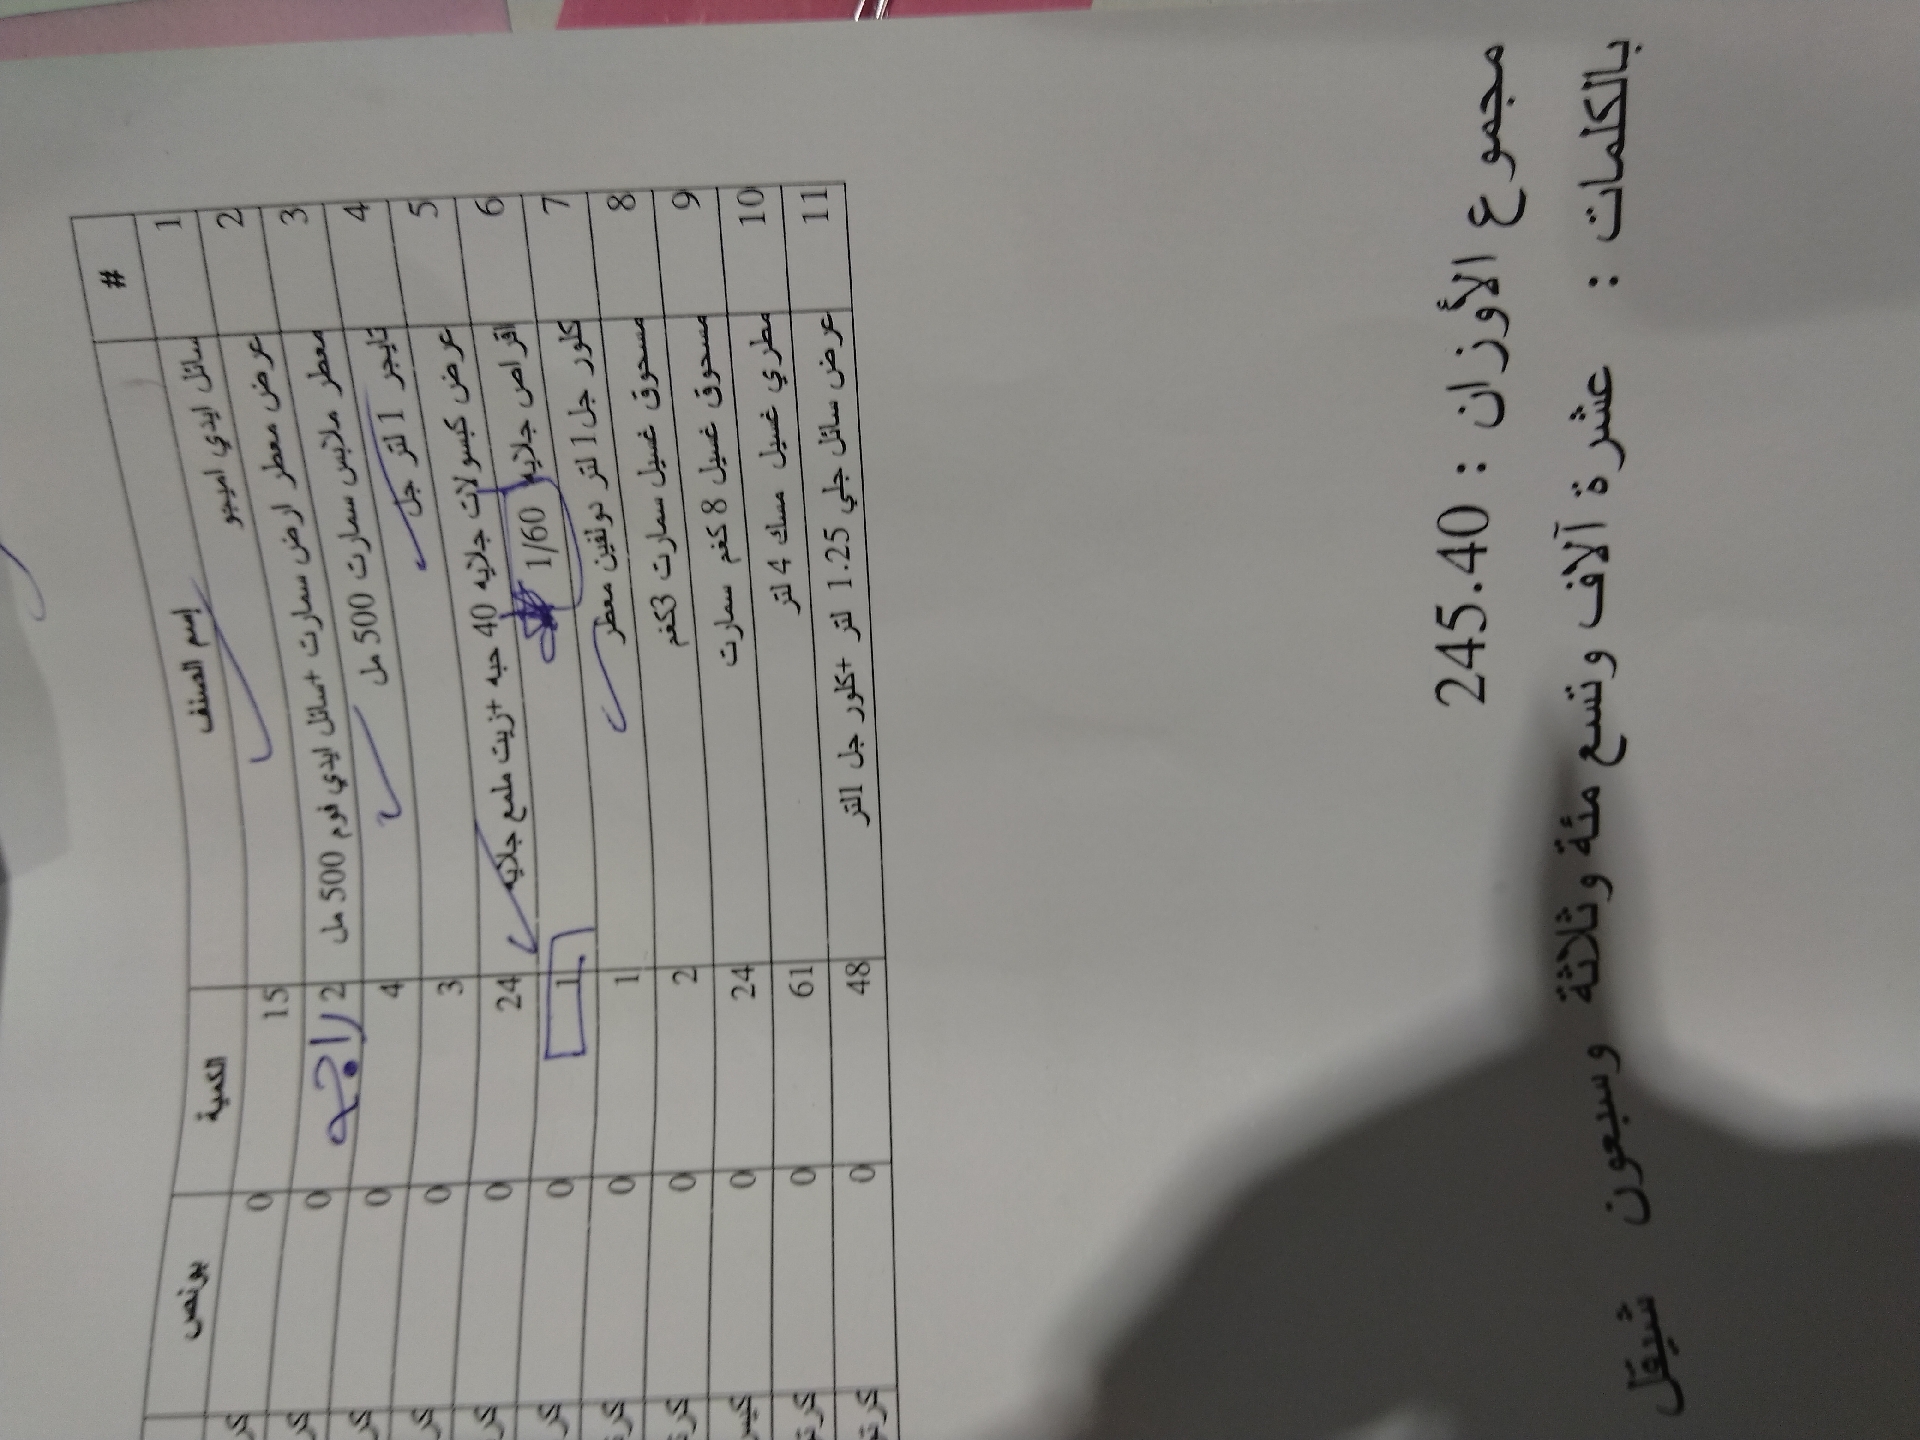 # إسم الصنف الكمية بونص
1 سائل ايدي اميجو 15 0
2 عرض معطر ارض سمارت +سائل ايدي فوم 500 مل 2 راجع 0
3 معطر ملابس سمارت 500 مل 4 0
4 تايجر 1 لتر جل 3 0
5 عرض كبسولات جلايه 40 حبه +زيت ملمع جلايه 24 0
6 اقراص جلايه 1/60 1 0
7 كلور جل 1 لتر دولفين معطر 1 0
8 مسحوق غسيل سمارت 3كغم 2 0
9 مسحوق غسيل 8 كغم سمارت 24 0
10 مطري غسيل مسك 4 لتر 61 0
11 عرض سائل جلي 1.25 لتر +كلور جل 1لتر 48 0
مجموع الأوزان : 245.40
بالكلمات : عشرة آلاف وتسع مئة وثلاثة وسبعون شيقل